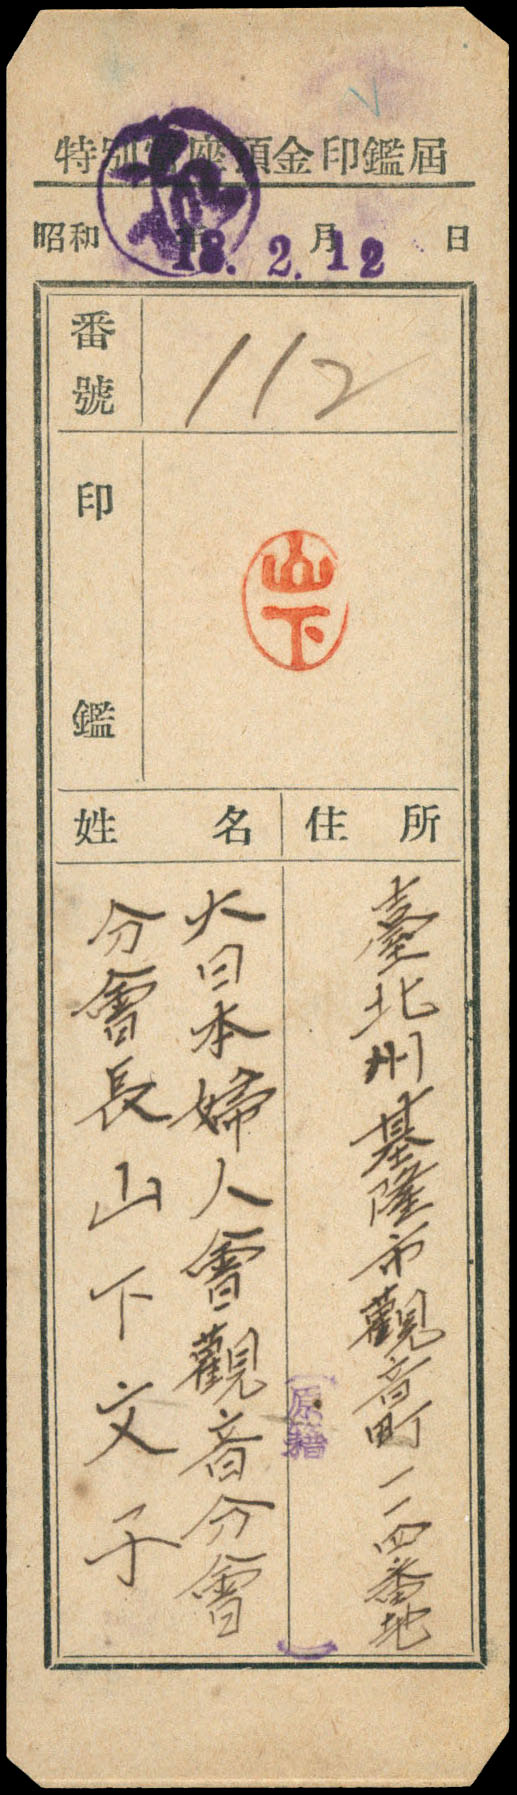 特別當座預金印鑑屆
昭和 年 月 日
18. 2. 12
番號
112
印鑑
山下
住所
姓名
臺北州基隆市觀音町一一四番地
(原籍 )
大日本婦人會觀音分會
分會長山下文子